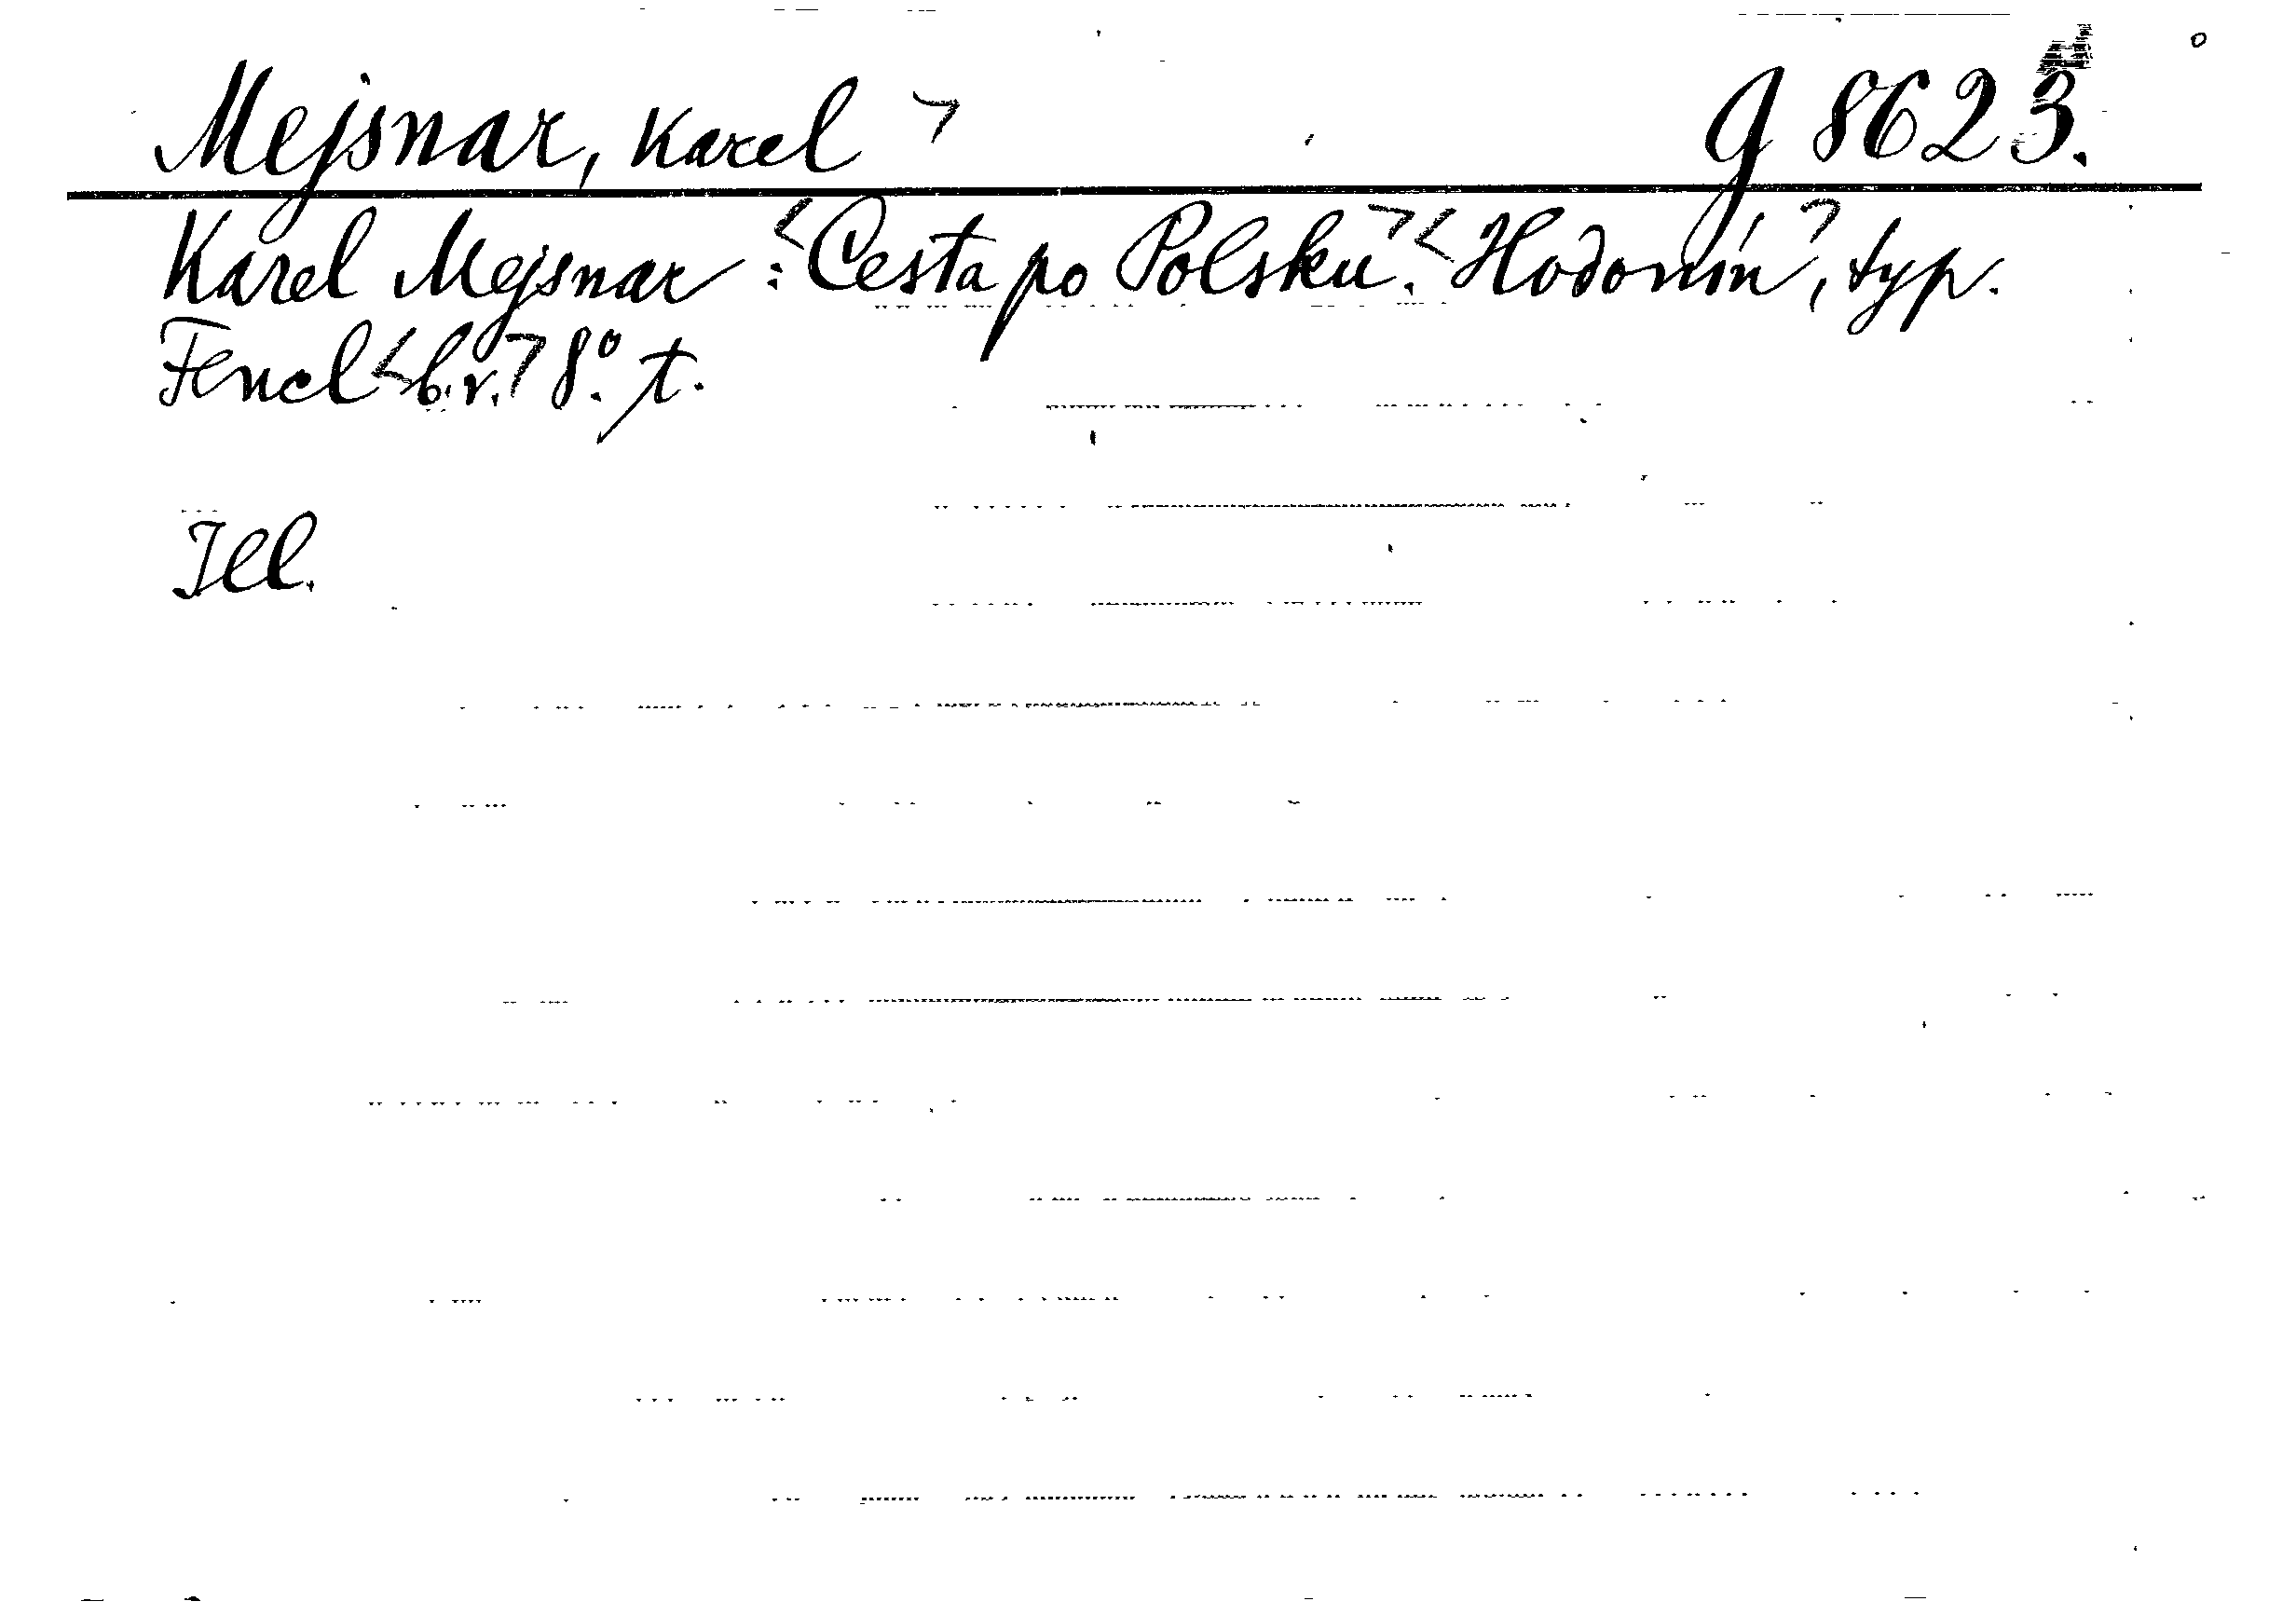 Mejsnar, Karel > g 8623.
Karel Mejsnar: <Cesta po Polsku>. <Hodonín>, typ.
Fencl <b.r.> 8°. t.
Ill.